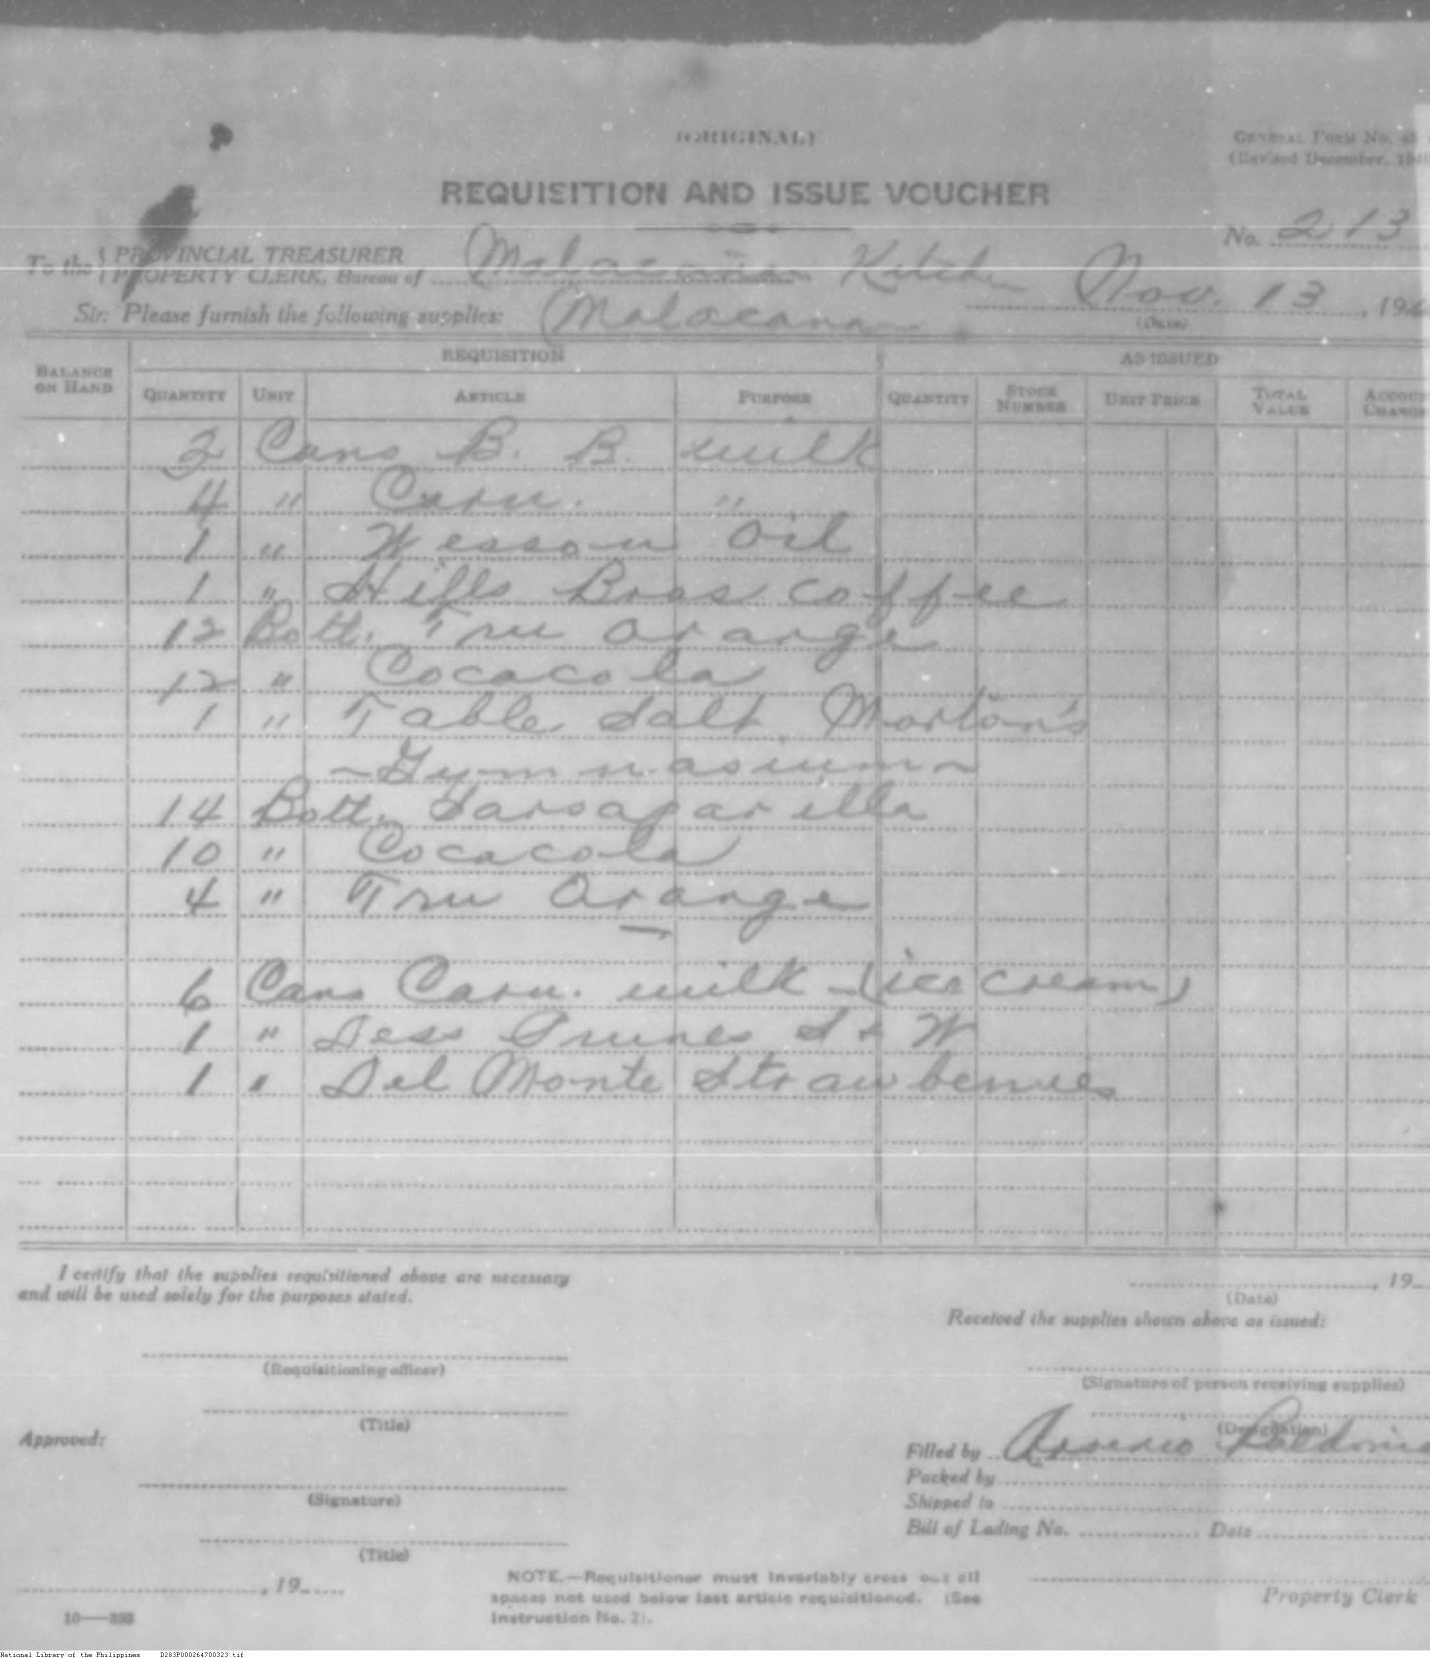 (ORIGINAL)
GENERAL FORM No.
(Revised December,
REQUISITION AND ISSUE VOUCHER
No. 213
To the { PROVINCIAL TREASURER
PROPERTY CLERK, Bureau of Malacañan Kitchen Nov. 13, 19
(Date)
Sir: Please furnish the following supplies: Malacanan
BALANCE ON HAND REQUISITION AS ISSUED
QUANTITY UNIT ARTICLE PURPOSE QUANTITY STOCK NUMBER UNIT PRICE TOTAL VALUE
2 Cans B. B. milk
4 " Carn. "
1 " Wesson Oil
1 " Hills Bros coffee
12 Bott. Tru Orange
12 " Cococola
1 " Table Salt Morton's
~Gymnasium~
14 Bott. Sarsaparilla
10 " Cococola
4 " Tru Orange
6 Cans Carn. milk - (ice cream)
1 " Dess Prunes S & W
1 " Del Monte Strawberries
I certify that the supplies requisitioned above are necessary
and will be used solely for the purposes stated.
, 19
(Date)
Received the supplies shown above as issued:
(Requisitioning officer)
(Signature of person receiving supplies)
(Title)
(Designation)
Approved:
Filled by Arsenio
Packed by
(Signature)
Shipped to
Bill of Lading No. Date
(Title)
, 19
NOTE.—Requisitioner must invariably cross out all
spaces not used below last article requisitioned. (See
Instruction No. 2).
Property Clerk
National Library of the Philippines D283P000264700323.tif